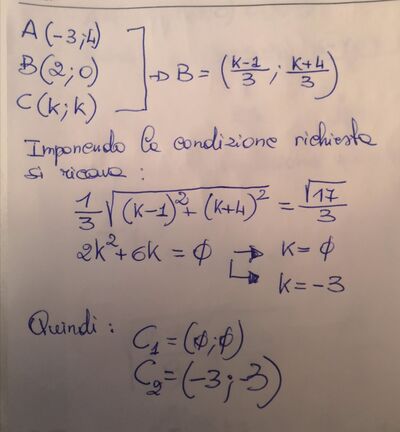 A(-3;4)
B(2;0) → B = (k-1/3 ; k+4/3)
C(k;k)
Imponendo la condizione richiesta
si ricava:
1/3 √((k-1)²+(k+4)²) = √17/3
2k²+6k = 0 → k = 0
↳ k = -3
Quindi: C₁ = (0;0)
C₂ = (-3;-3)